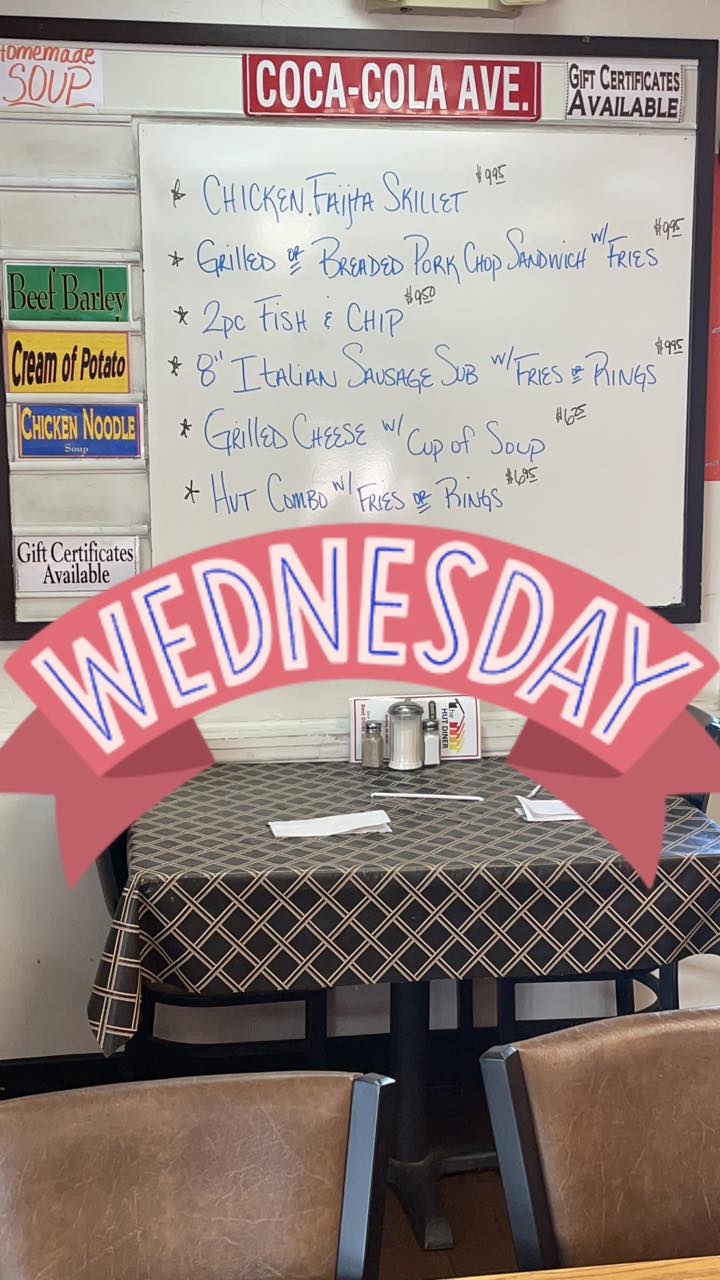 Homemade
SOUP
COCA-COLA AVE.
GIFT CERTIFICATES
AVAILABLE
* CHICKEN FAJITA SKILLET $9.95
* GRILLED OR BREADED PORK CHOP SANDWICH W/ FRIES $9.95
* 2pc FISH & CHIP $9.50
* 8" ITALIAN SAUSAGE SUB W/ FRIES OR RINGS $9.95
* GRILLED CHEESE W/ CUP OF SOUP $6.25
* HUT COMBO W/ FRIES OR RINGS $6.95
Beef Barley
Cream of Potato
CHICKEN NOODLE
Soup
Gift Certificates
Available
WEDNESDAY
The
HUT DINER